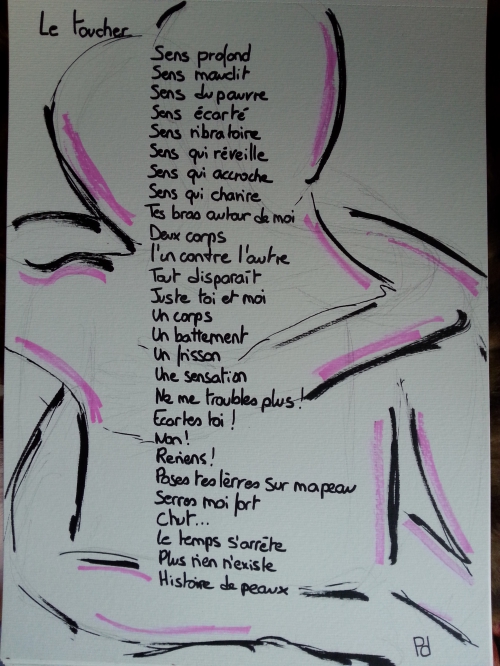 Le toucher
Sens profond
Sens maudit
Sens du pauvre
Sens écarté
Sens vibratoire
Sens qui réveille
Sens qui accroche
Sens qui chavire
Tes bras autour de moi
Deux corps
l'un contre l'autre
Tout disparaît
Juste toi et moi
Un corps
Un battement
Un frisson
Une sensation
Ne me troubles plus !
Ecartes toi !
Non !
Reviens !
Poses tes lèvres sur ma peau
Serres moi fort
Chut...
Le temps s'arrête
Plus rien n'existe
Histoire de peaux
Pd